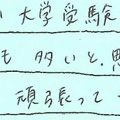 大学受験
も多いと思
頑張って